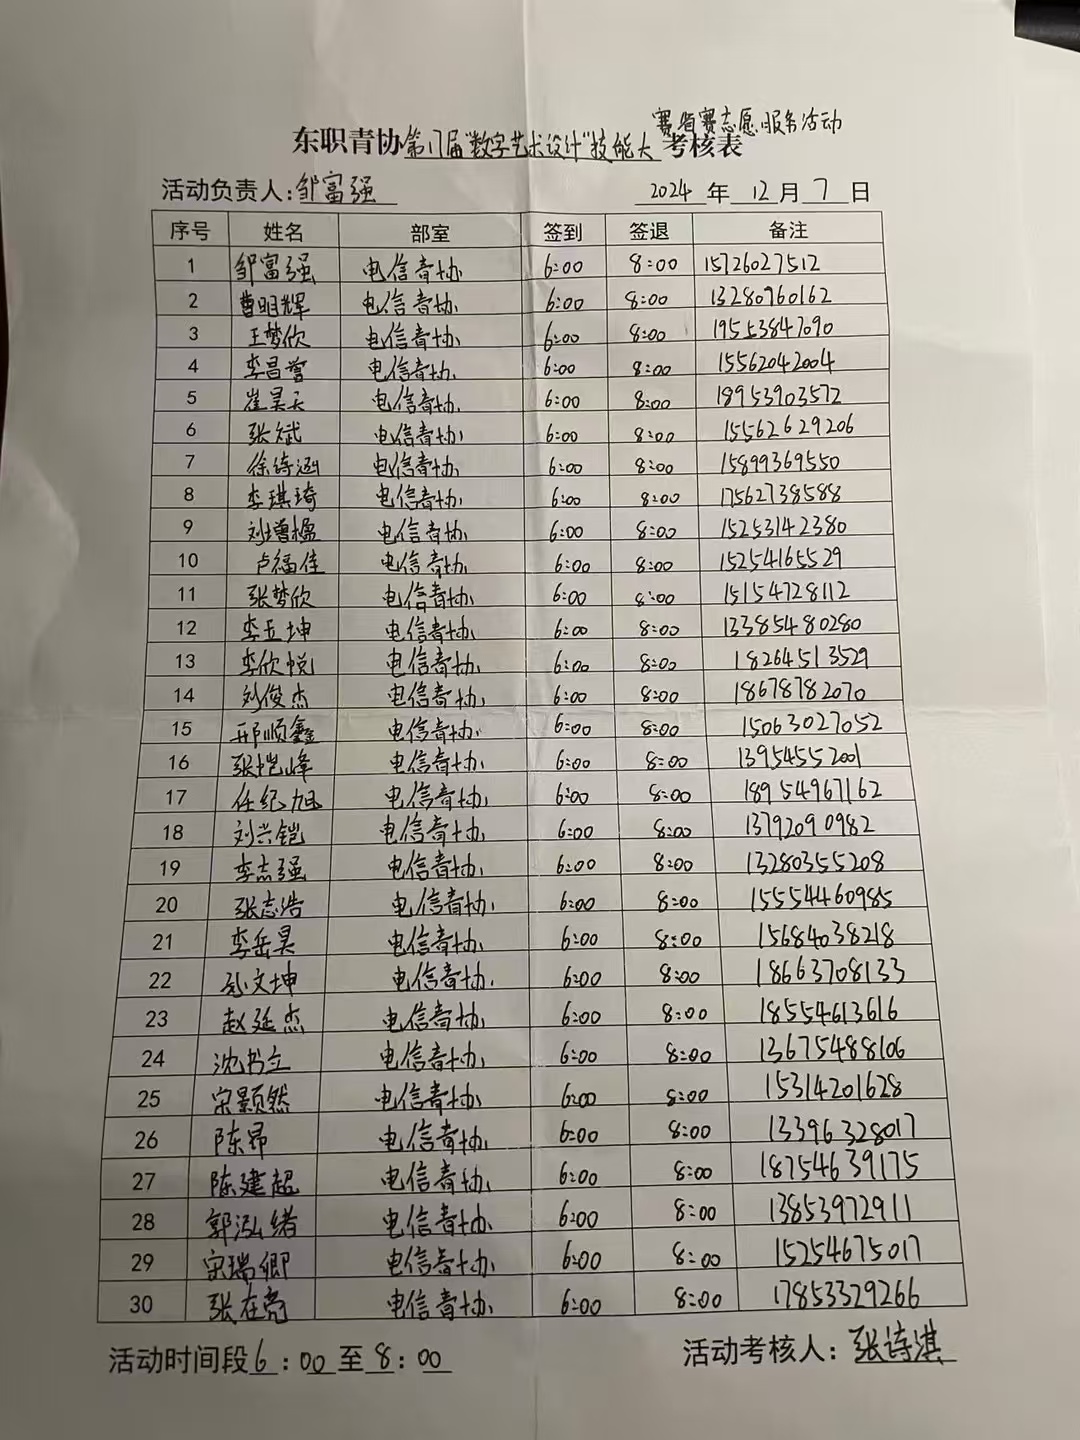 赛省赛志愿服务活动
东职青协第17届"数字艺术设计"技能大考核表
活动负责人:邹富强 2024 年 12 月 7 日
序号 姓名 部室 签到 签退 备注
1 邹富强 电信青协 6:00 8:00 15726027512
2 曹明辉 电信青协 6:00 8:00 13280960162
3 王梦欣 电信青协 6:00 8:00 19553847090
4 李昌誉 电信青协 6:00 8:00 15562042004
5 崔昊天 电信青协 6:00 8:00 18953903572
6 张斌 电信青协 6:00 8:00 15562629206
7 徐诗涵 电信青协 6:00 8:00 15899369550
8 李琪琦 电信青协 6:00 8:00 17562738588
9 刘增楹 电信青协 6:00 8:00 15253142380
10 卢福佳 电信青协 6:00 8:00 15254165529
11 张梦欣 电信青协 6:00 8:00 15154728112
12 李玉坤 电信青协 6:00 8:00 13385480280
13 李欣悦 电信青协 6:00 8:00 18264513529
14 刘俊杰 电信青协 6:00 8:00 18678782070
15 邢顺鑫 电信青协 6:00 8:00 15063027052
16 张恺峰 电信青协 6:00 8:00 13954552001
17 任纪旭 电信青协 6:00 8:00 18954967162
18 刘兴铠 电信青协 6:00 8:00 13792090982
19 李志强 电信青协 6:00 8:00 13280355208
20 张志浩 电信青协 6:00 8:00 15554460985
21 李岳昊 电信青协 6:00 8:00 15684038218
22 孙文坤 电信青协 6:00 8:00 18663708133
23 赵延杰 电信青协 6:00 8:00 18554613616
24 沈书立 电信青协 6:00 8:00 13675488106
25 宋颢然 电信青协 6:00 8:00 15314201628
26 陈昂 电信青协 6:00 8:00 13396328017
27 陈建超 电信青协 6:00 8:00 18754639175
28 郭泓绪 电信青协 6:00 8:00 13853972911
29 宋瑞卿 电信青协 6:00 8:00 15254675017
30 张在亮 电信青协 6:00 8:00 17853329266
活动时间段6:00至8:00 活动考核人:张诗淇